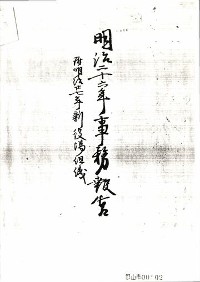 明治二十六年事務報告
附明治廿七年新役場組織